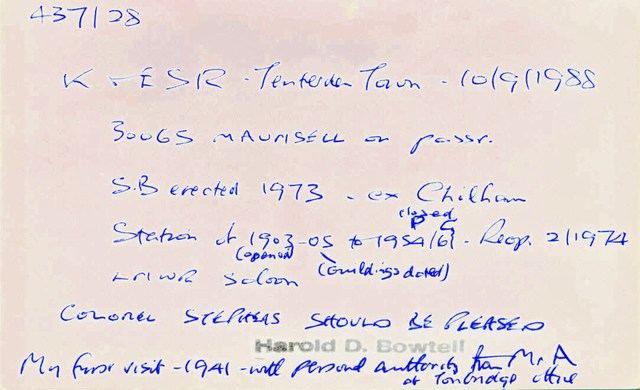 437/28
K + ESR - Tenterden Town - 10/9/1988
300 GS MAUNSELL on passr.
S.B erected 1973 - ex Chilham
closed
P G
Station of 1903-05 to 1954/61 - Reop. 2/1974
(opened) (buildings dated)
LNWR Saloon
COLONEL STEPHENS SHOULD BE PLEASED
Harold D. Bowtell
My first visit - 1941 - with personal authority from Mr A
at Tonbridge office